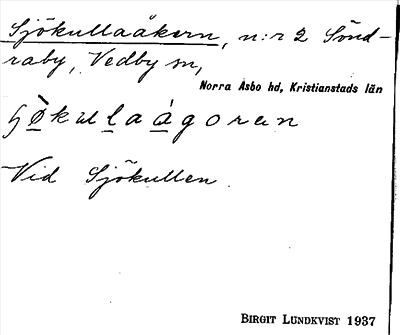 Sjökullaåkern, n:r 2 Sönd-
raby, Vedby sn,
Norra Åsbo hd, Kristianstads län
Vid Sjökullen.
BIRGIT LUNDKVIST 1937